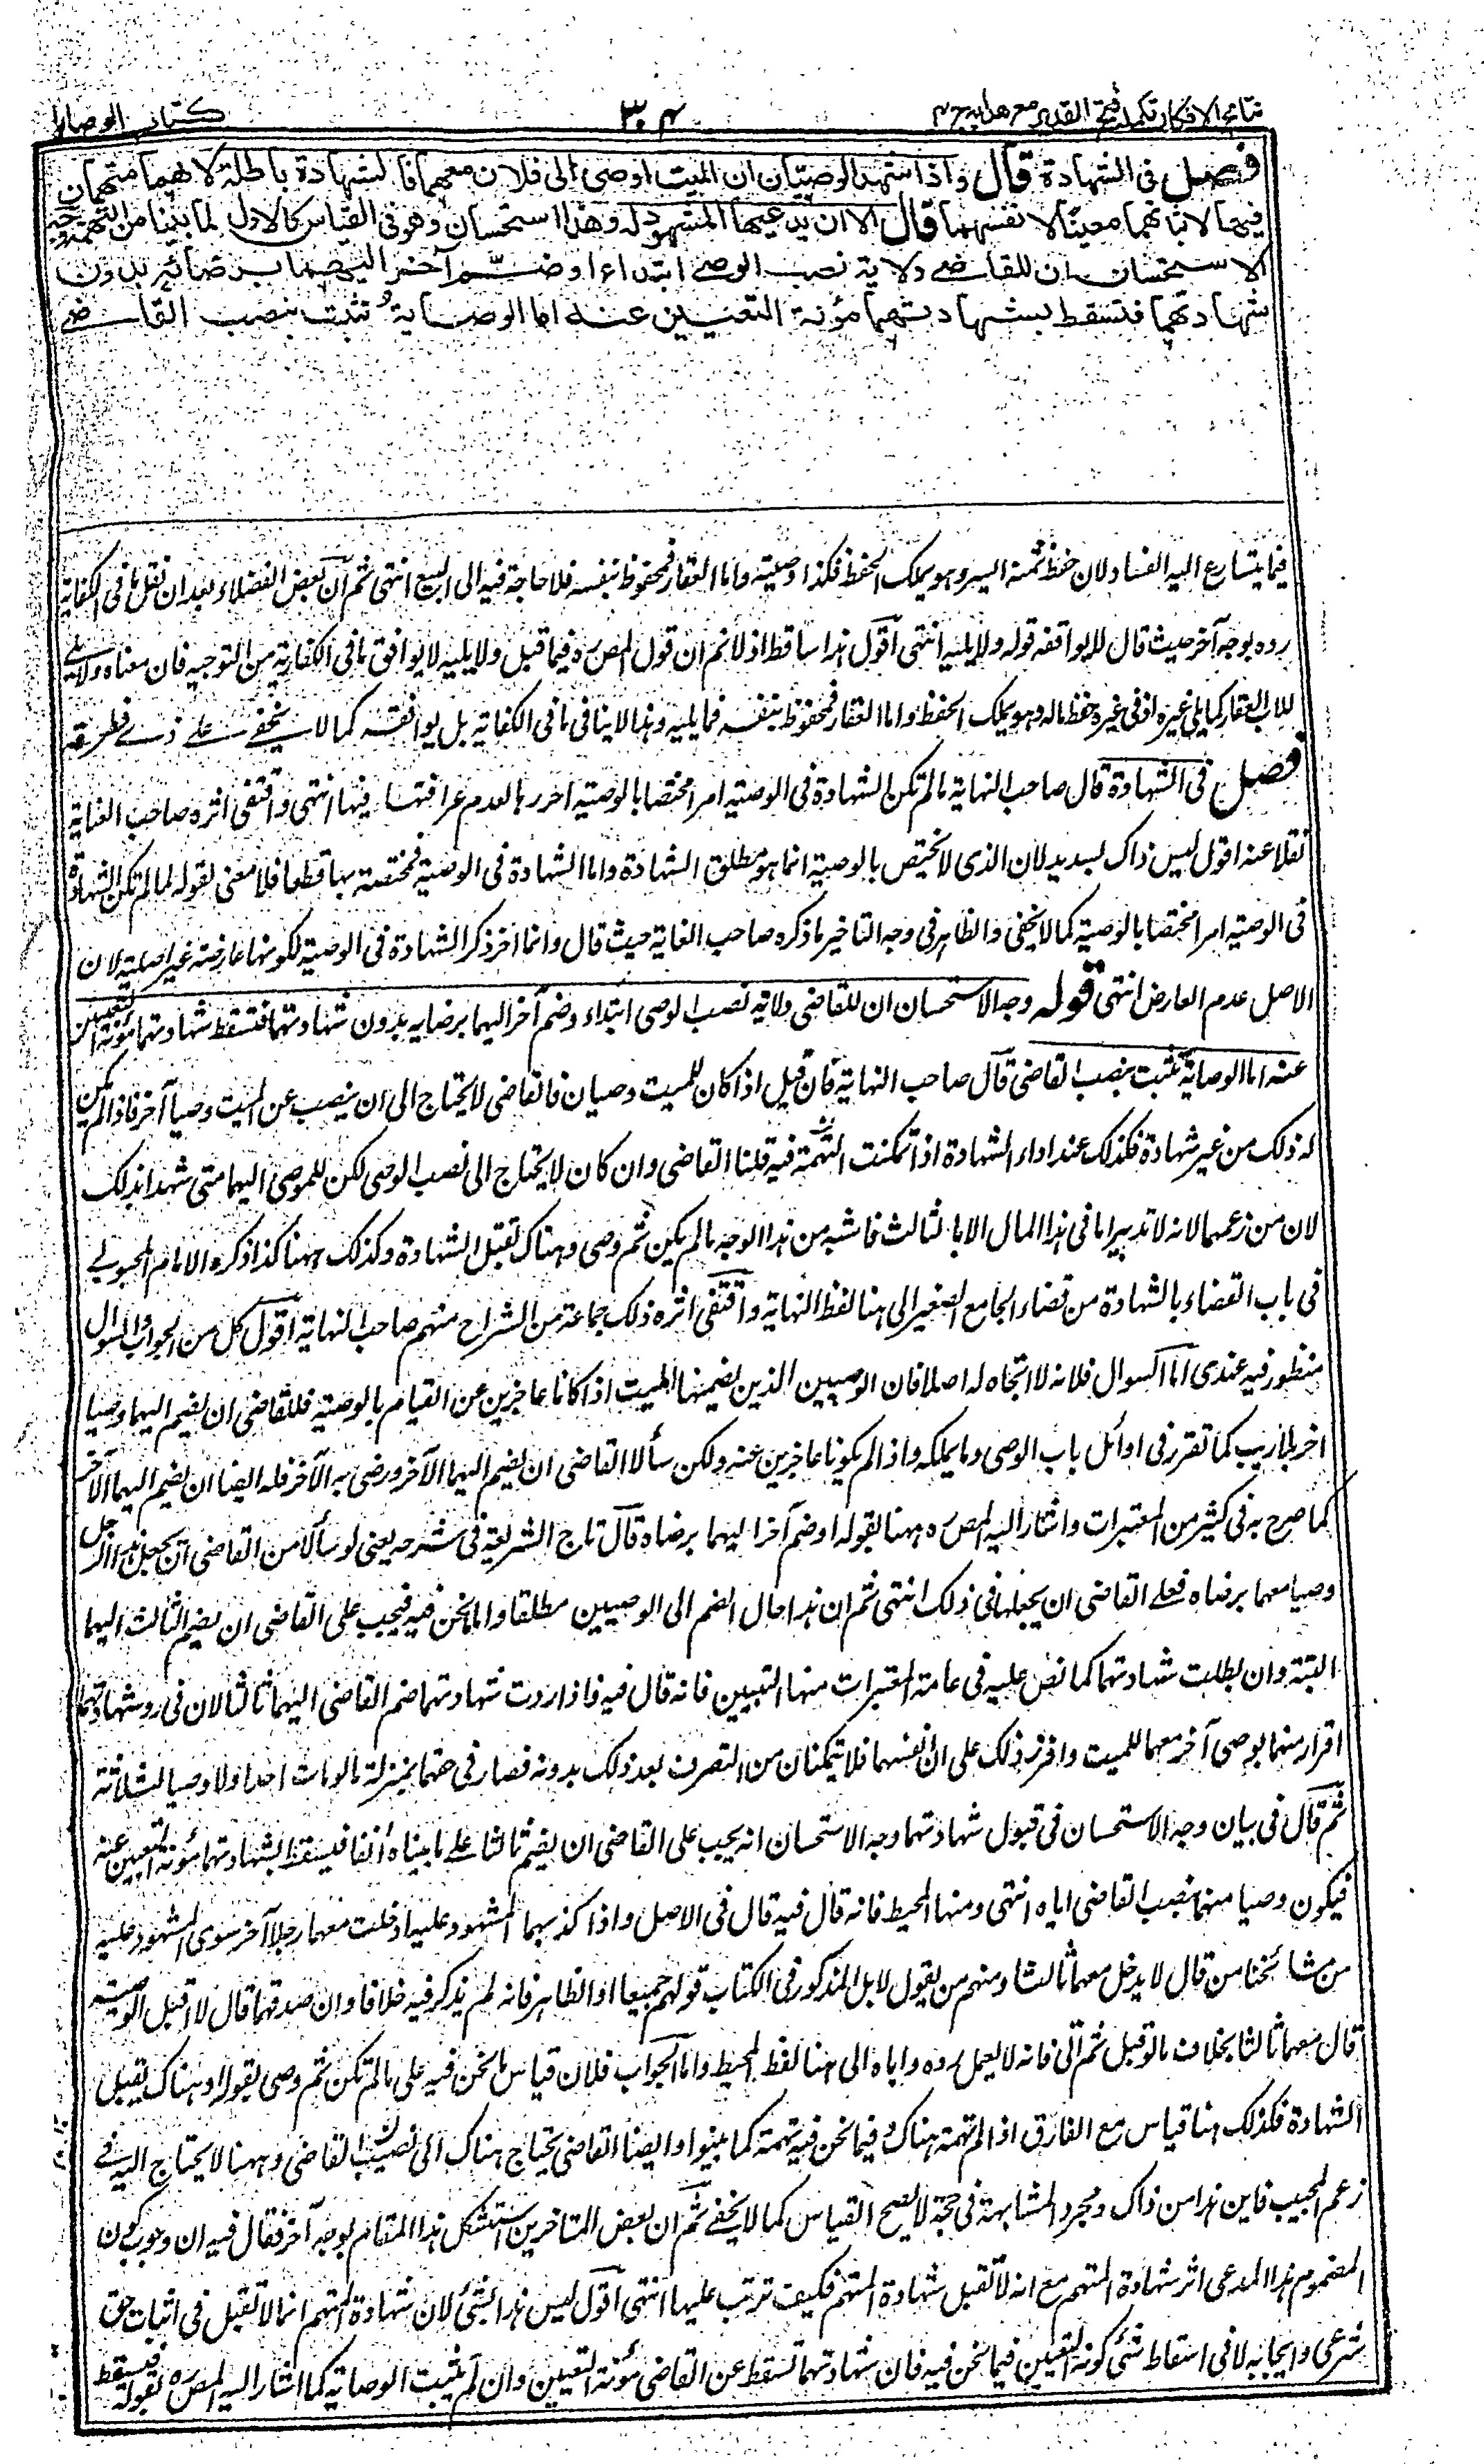 نتائج الافكار تكملة فتح القدير مع هدايه ج ٤
٣٠٤
كتاب الوصايا
فصل في الشهادة قال واذا شهد الوصيان ان الميت اوصى الى فلان معهما فالشهادة باطلة لانهما متهمان
فيها لاثباتهما معينا لانفسهما قال الا ان يدعيها المشهود له وهذا استحسان وهو في القياس كالاول لما بينا من التهمة وجه
الاستحسان ان للقاضي ولاية نصب الوصي ابتداء او ضم آخر اليهما برضائه بدون
شهادتهما فتسقط بشهادتهما مؤنة التعيين عنه اما الوصاية تثبت بنصب القاضي
فيما يتسارع اليه الفساد لان حفظ ثمنه ايسر وهو يملك الحفظ فكذا وصيته واما العقار فمحفوظ بنفسه فلا حاجة فيه الى البيع انتهى ثم ان بعض الفضلاء بعد ان نقل ما في الكفاية
رده بوجه آخر حيث قال لا يوافقه قوله ولا يليه انتهى اقول هذا ساقط اذ لا نم ان قول المص ره فيما قبل ولا يليه لا يوافق ما في الكفاية من التوجيه فان معناه ولا يلي
للاب العقار كما يلي غيره اذ في غيره حفظ ماله وهو يملك الحفظ واما العقار فمحفوظ بنفسه فما يليه وهذا لا ينافي ما في الكفاية بل يوافقه كما لا يخفى على ذي فطرة
فصل في الشهادة قال صاحب النهاية لما لم تكن الشهادة في الوصية امرا مختصا بالوصية اخرها لعدم عراقتها فيها انتهى واقتفى اثره صاحب العناية
نقلا عنه اقول ليس ذاك بسديد لان الذي لا يختص بالوصية انما هو مطلق الشهادة واما الشهادة في الوصية فمختصة بها قطعا فلا معنى لقوله لما لم تكن الشهادة
في الوصية امرا مختصا بالوصية كما لا يخفى والظاهر في وجه التاخير ما ذكره صاحب الغاية حيث قال وانما اخر ذكر الشهادة في الوصية لكونها عارضة غير اصلية لان
الاصل عدم العارض انتهى قوله وجه الاستحسان ان للقاضي ولاية نصب الوصي ابتداء وضم آخر اليهما برضايه بدون شهادتهما فتسقط شهادتهما مؤنة التعيين
عنه اما الوصاية تثبت بنصب القاضي قال صاحب النهاية فان قيل اذا كان للميت وصيان فالقاضي لا يحتاج الى ان ينصب عن الميت وصيا آخر فاذا لم يكن
له ذلك من غير شهادة فكذلك عند اداء الشهادة اذا تمكنت التهمة فيه قلنا القاضي وان كان لا يحتاج الى نصب الوصي لكن للموصى اليهما متى شهدا بذلك
لان من زعمهما لانه لا تدبير لنا في هذا المال الا بالثالث فاشبه من هذا الوجه ما لم يكن ثم وصي وهناك تقبل الشهادة وكذلك ههنا كذا ذكره الامام المحبوبي
في باب القضاء بالشهادة من قضاء الجامع الصغير الى هنا لفظ النهاية واقتفى اثره ذلك جماعة من الشراح منهم صاحب النهاية اقول كل من الجواب والسوال
منظور فيه عندي اما السوال فلانه لا اتجاه له اصلا فان الوصيين الذين يضمنها الميت اذا كانا عاجزين عن القيام بالوصية فللقاضي ان يضم اليهما وصيا
اخر بلا ريب كما تقرر في اوائل باب الوصي وما يملكه واذا لم يكونا عاجزين عنه ولكن سألا القاضي ان يضم اليهما الآخر ورضي به الآخر فله ايضا ان يضم اليهما الآخر
كما صرح به في كثير من المعتبرات واشار اليه المص ره ههنا بقوله او ضم آخر اليهما برضاه قال تاج الشريعة في شرحه يعني لو سألا من القاضي ان يجعل هذا الرجل
وصيا معهما برضاه فعلى القاضي ان يجيبهما في ذلك انتهى ثم ان هذا حال الضم الى الوصيين مطلقا واما ما نحن فيه فيجب على القاضي ان يضم الثالث اليهما
البتة وان بطلت شهادتهما كما نص عليه في عامة المعتبرات منها التبيين فانه قال فيه واذا ردت شهادتهما ضم القاضي اليهما ثالثا لان في رد شهادتهما
اقرار منهما بوصي آخر معهما للميت واقرر ذلك على انفسهما فلا يتمكنان من التصرف بعد ذلك بدونه فصار في حقهما بمنزلة ما لو مات احد اولاوصيا الثلاثة
ثم قال في بيان وجه الاستحسان في قبول شهادتهما وجه الاستحسان انه يجب على القاضي ان يضم ثالثا على ما بيناه آنفا فيسقط بشهادتهما مئونة التعيين عنه
فيكون وصيا منهما بنصب القاضي اياه انتهى ومنها المحيط فانه قال فيه قال في الاصل واذا كذبهما المشهود عليه ادخلت معهما رجلا آخر سوى المشهود عليه
من مشائخنا من قال لا يدخل معهما ثالثا ومنهم من يقول لا بل المذكور في الكتاب قولهم جميعا اذ الظاهر فانه لم يذكر فيه خلافا وان صدقهما قال لا اقبل الوصية
قال معهما ثالثا بخلاف ما لو قبل ثم اتى فانه لا يعمل رده واباه الى هنا لفظ المحيط واما الجواب فلان قياس ما نحن فيه على ما لم تكن ثم وصي بقوله وهناك يقبل
الشهادة فكذلك هنا قياس مع الفارق اذ لم تهمة هناك وفيما نحن فيه تهمة كما بينوا وايضا القاضي يحتاج هناك الى نصيب القاضي وههنا لا يحتاج اليه في
زعم المجيب فاين هذا من ذاك ومجرد المشابهة في جهة لا يصح القياس كما لا يخفى ثم ان بعض المتاخرين استشكل هذا المقام بوجه آخر فقال فيه ان وجوب كون
المضموم هذا المدعي اثر شهادة المتهم مع انه لا تقبل شهادة المتهم فكيف ترتب عليها انتهى اقول ليس هذا بشئ لان شهادة المتهم انما لا تقبل في اثبات حق
شرعي وايجابه لا في اسقاط شئ كمونة التعيين فيما نحن فيه فان شهادتهما تسقط عن القاضي مئونة التعيين وان لم يثبت الوصاية كما اشار اليه المص ره بقوله فيسقط